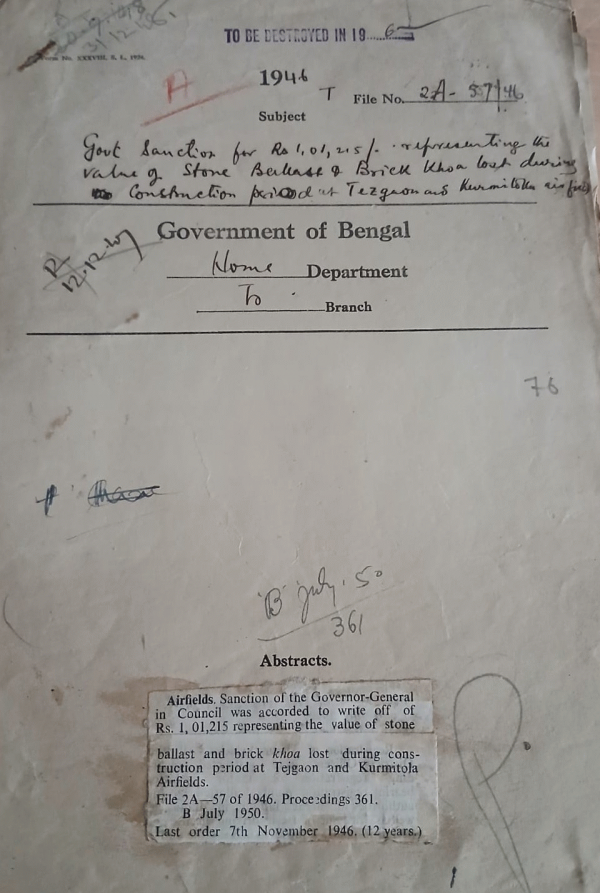 31.12.46.
TO BE DESTROYED IN 19 6
Form No. XXXVIII, S. I., 1936.
A
1946
T File No. 2A-57/46
Subject
Govt Sanction for Rs 1,01,215/- representing the
value of Stone Ballast & Brick Khoa lost during
Construction period at Tezgaon and Kurmitola
12.12.47
Government of Bengal
Home Department
Branch
76
'B' July. 50
361
Abstracts.
Airfields. Sanction of the Governor-General
in Council was accorded to write off of
Rs. 1, 01,215 representing the value of stone
ballast and brick khoa lost during cons-
truction period at Tejgaon and Kurmitola
Airfields.
File 2A—57 of 1946. Proceedings 361.
B July 1950.
Last order 7th November 1946. (12 years.)